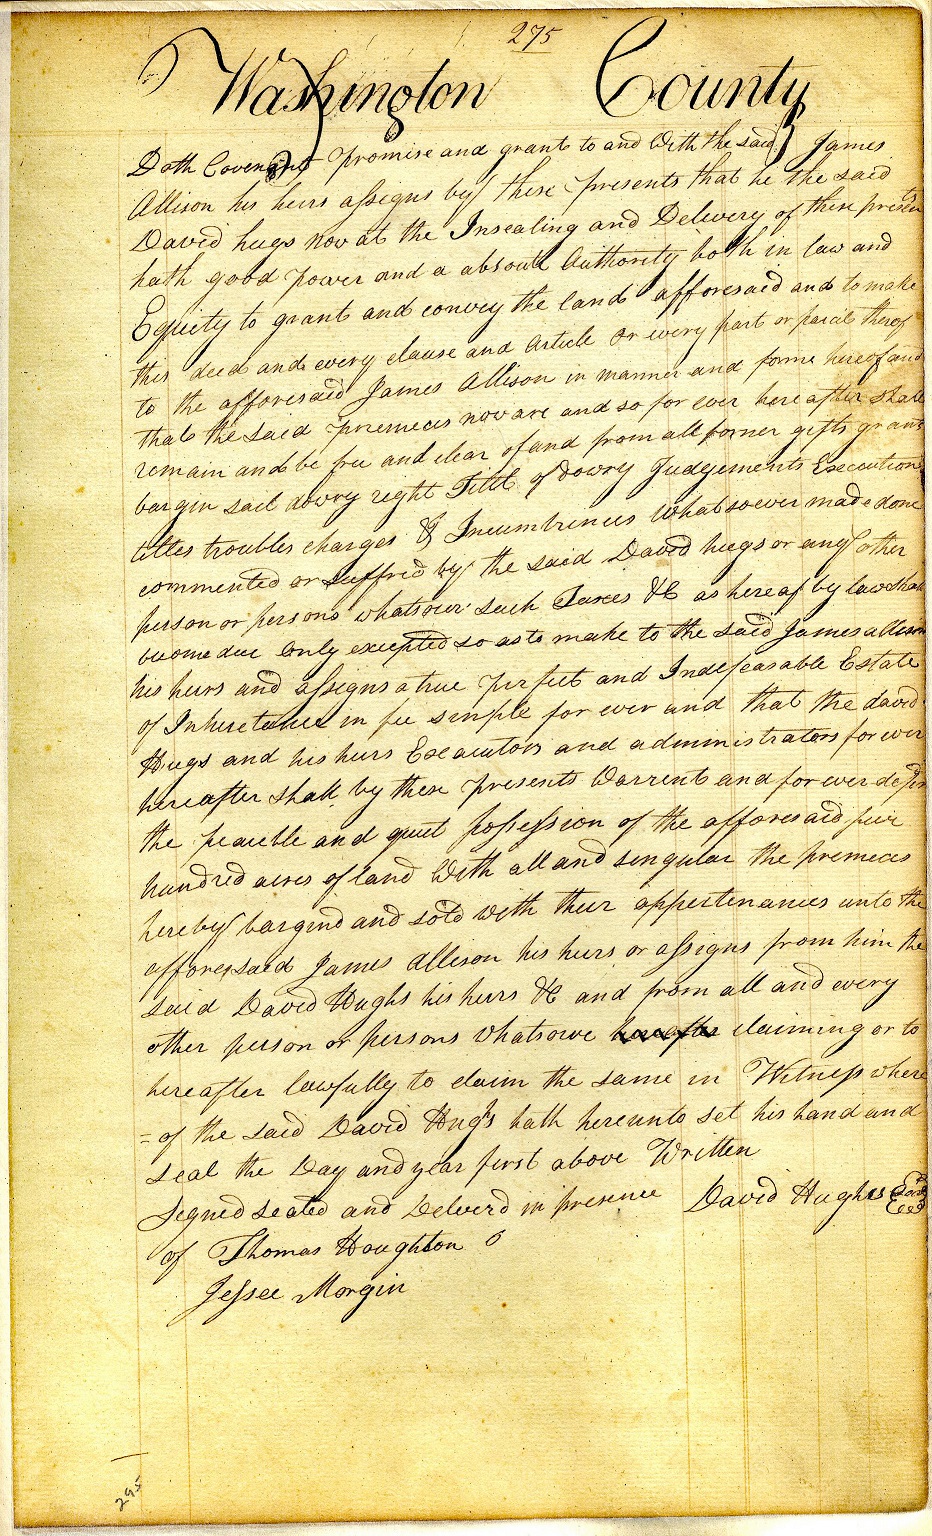 275
Washington County
Doth Covenant promise and grant to and With the said James
Allison his heirs assigns by these presents that he the said
David hugs now at the Insealing and Delivery of these presents
hath good power and a absoult Authority both in law and
Equity to grant and convey the land afforesaid and to make
this deed and every clause and Article or every part or parcil therof
to the afforesaid James Allison in manner and forme hereof and
that the said premeces now are and so for ever hereafter shall
remain and be free and clear of and from all forner gifts grants
bargin sail dowry right Tittl of dowry Judgements Executions
tittles troubles charges & Incumbrincis Whatsoever made done
commented or suffred by the said David hugs or any other
person or persons whatsour such Taxes &C as hereaf by law shall
become due only excepted so as to make to the said James allison
his heirs and assigns a true perfect and Indefeasable Estate
of Inheretance in fee simple for ever and that the david
Hugs and his heirs Executors and administrators for ever
hereafter shall by these presents Warrent and for ever defn
the peacible and quiet possession of the afforesaid four
hundred acres of land With all and singular the premeces
hereby bargind and sold with their appertinances unto the
afforesaid James Allison his heirs or assigns from him the
said David Hughs his heirs &C and from all and every
other person or persons whatsorve hereafter claiming or to
hereafter lawfully to claim the same in Witness where
=of the said David Hughs hath hereunto set his hand and
seal the Day and year first above Written
Segned sealed and Delverd in presence David Hughes Seal
of Thomas Houghton
Jessee Morgin
295